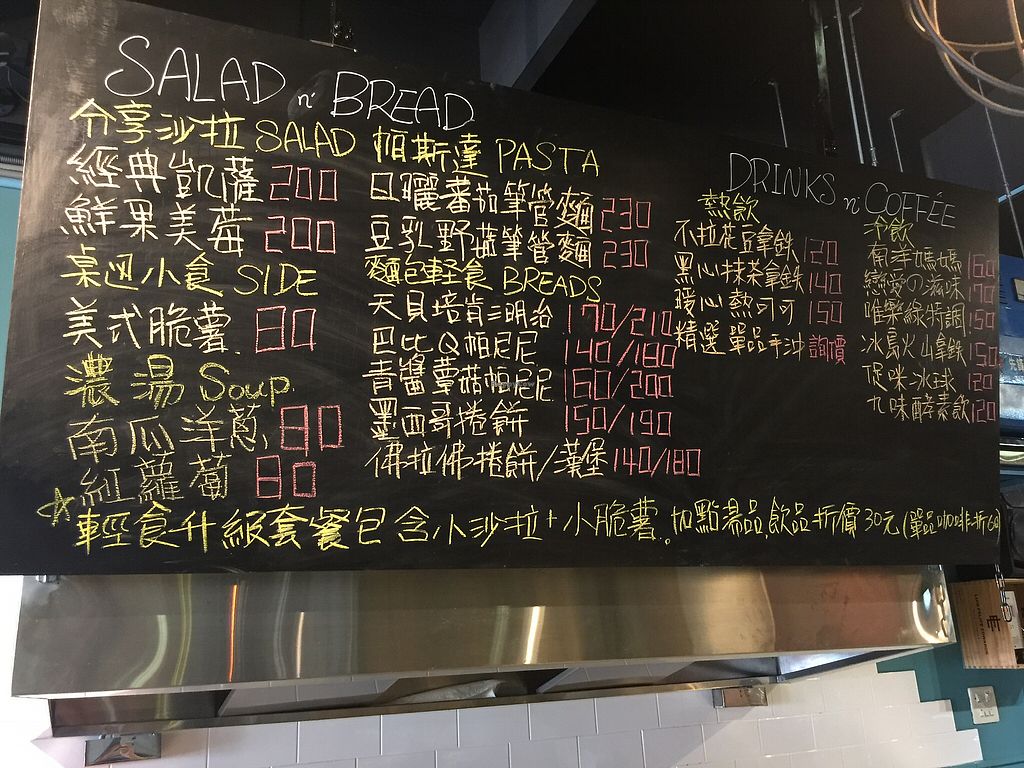 SALAD n' BREAD
分享沙拉 SALAD
經典凱薩 200
鮮果美莓 200
桌邊小食 SIDE
美式脆薯 80
濃湯 Soup
南瓜洋蔥 80
紅蘿蔔 80
帕斯達 PASTA
日曬蕃茄筆管麵 230
豆乳野菇筆管麵 230
麵包輕食 BREADS
天貝培肯三明治 170/210
巴比Q帕尼尼 140/180
青醬蕈菇帕尼尼 160/200
墨西哥捲餅 150/190
佛拉佛捲餅/漢堡 140/180
DRINKS n' COFFÉE
熱飲
不拉花豆拿鐵 120
黑心抹茶拿鐵 140
暖心熱可可 150
精選單品手沖 詢價
冷飲
有洋媽媽 160
戀愛の滋味 170
唯樂綠特調 150
冰島火山拿鐵 150
促咪冰球 120
九味酵素飲 120
☆輕食升級套餐包含小沙拉+小脆薯.加點湯品,飲品折價30元(單品咖啡折60)